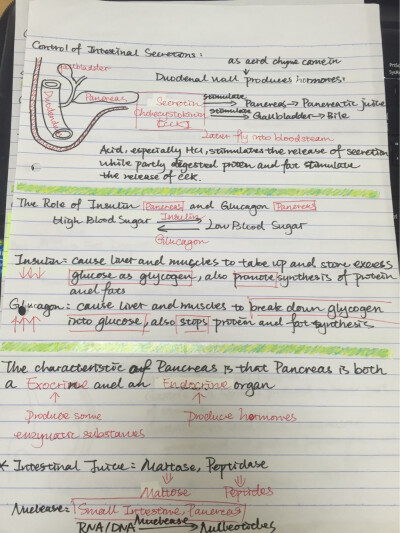 Control of Intestinal Secretions:
as acid chyme came in
Gallbladder
Duodenal wall produces hormones:
Duodenum
Pancreas
Secretin stimulate Pancreas → Pancreatic juice
Cholecystokinin stimulate Gallbladder → Bile
[CCK]
Later fly into bloodstream
Acid, especially HCl, stimulates the release of secretion
while partly digested protein and fat stimulate
the release of CCK.
The Role of Insulin [Pancreas] and Glucagon [Pancreas]
High Blood Sugar Insulin Low Blood Sugar
Glucagon
Insulin: cause liver and muscles to take up and store excess
↓↓↓ glucose as glycogen, also promote synthesis of protein
and fats
Glucagon: cause liver and muscles to break down glycogen
↑↑↑ into glucose, also stops protein and fat synthesis
The characteristic of Pancreas is that Pancreas is both
a Exocrine and an Endocrine organ
↑ ↑
Produce some Produce hormones
enzymatic substances
* Intestinal Juice: Maltase, Peptidase
Maltose Peptides
Nuclease: Small Intestine, Pancreas
RNA/DNA Nuclease → Nucleotides